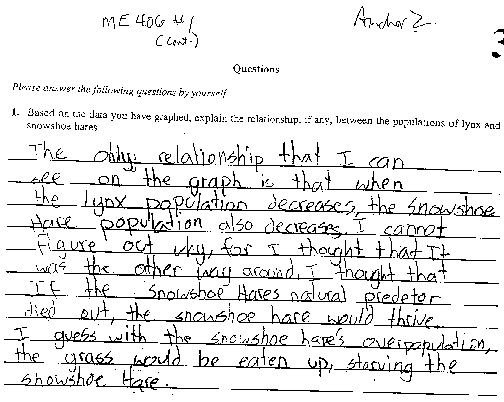 ME406 #1
(cont.)
Anchor 2
3
Questions
Please answer the following questions by yourself
1. Based on the data you have graphed, explain the relationship, if any, between the populations of lynx and
snowshoe hares
The only relationship that I can
see on the graph is that when
the lynx population decreases, the snowshoe
Hare population also decreases, I cannot
Figure out why, for I thought that It
was the other way around, I thought that
If the Snowshoe Hares natural predetor
died out, the snowshoe hare would thrive.
I guess with the snowshoe hare's overpopulation,
the grass would be eaten up, starving the
snowshoe Hare.